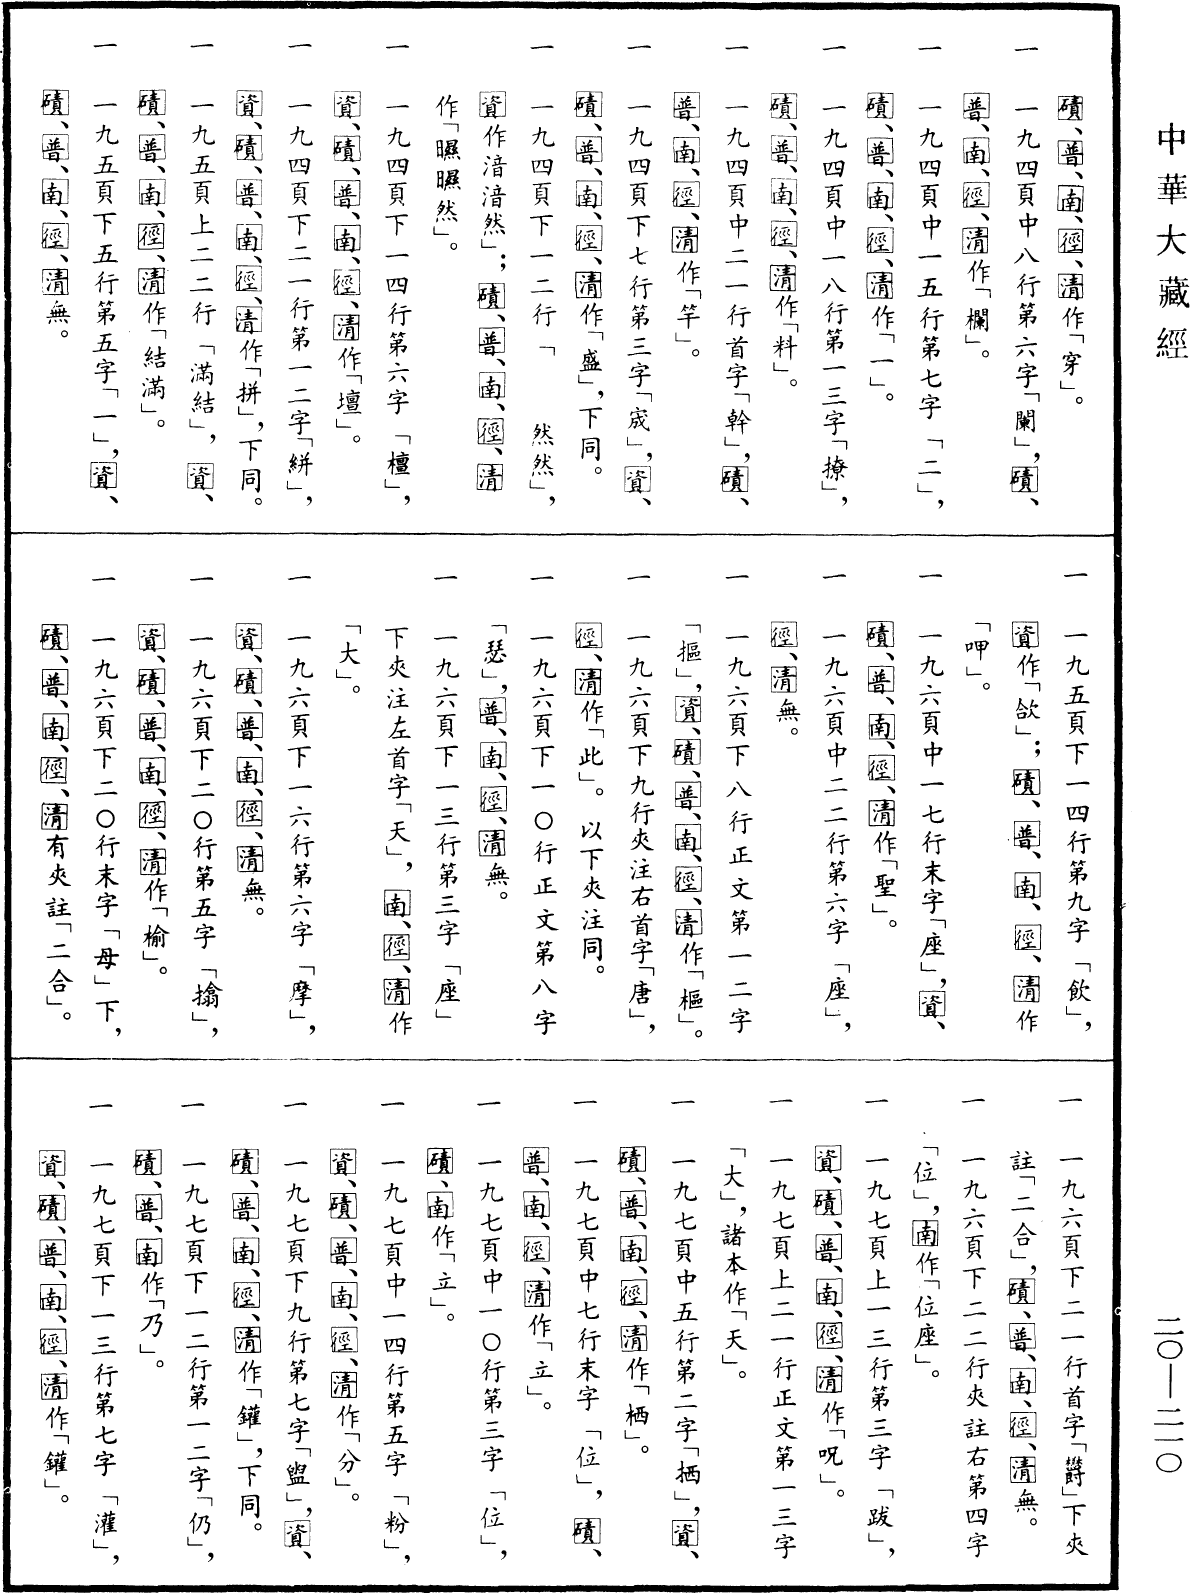 中華大藏經
磧、普、南、徑、清作「穿」。
一　一九四頁中八行第六字「闌」，磧、
普、南、徑、清作「欄」。
一　一九四頁中一五行第七字「二」，
磧、普、南、徑、清作「一」。
一　一九四頁中一八行第一三字「撩」，
磧、普、南、徑、清作「料」。
一　一九四頁中二一行首字「幹」，磧、
普、南、徑、清作「竿」。
一　一九四頁下七行第三字「宬」，資、
磧、普、南、徑、清作「盛」，下同。
一　一九四頁下一二行「　　然然」，
資作湆湆然」；磧、普、南、徑、清
作「㬎㬎然」。
一　一九四頁下一四行第六字「檀」，
資、磧、普、南、徑、清作「壇」。
一　一九四頁下二一行第一二字「絣」，
資、磧、普、南、徑、清作「拼」，下同。
一　一九五頁上二二行「滿結」，資、
磧、普、南、徑、清作「結滿」。
一　一九五頁下五行第五字「一」，資、
磧、普、南、徑、清無。
一　一九五頁下一四行第九字「飲」，
資作「欱」；磧、普、南、徑、清作
「呷」。
一　一九六頁中一七行末字「座」，資、
磧、普、南、徑、清作「聖」。
一　一九六頁中二二行第六字「座」，
徑、清無。
一　一九六頁下八行正文第一二字
「摳」，資、磧、普、南、徑、清作「樞」。
一　一九六頁下九行夾注右首字「唐」，
徑、清作「此」。以下夾注同。
一　一九六頁下一〇行正文第八字
「瑟」，普、南、徑、清無。
一　一九六頁下一三行第三字「座」
下夾注左首字「天」，南、徑、清作
「大」。
一　一九六頁下一六行第六字「摩」，
資、磧、普、南、徑、清無。
一　一九六頁下二〇行第五字「㩉」，
資、磧、普、南、徑、清作「榆」。
一　一九六頁下二〇行末字「母」下，
磧、普、南、徑、清有夾註「二合」。
一　一九六頁下二一行首字「欝」下夾
註「二合」，磧、普、南、徑、清無。
一　一九六頁下二二行夾註右第四字
「位」，南作「位座」。
一　一九七頁上一三行第三字「跋」，
資、磧、普、南、徑、清作「呪」。
一　一九七頁上二一行正文第一三字
「大」，諸本作「天」。
一　一九七頁中五行第二字「拪」，資、
磧、普、南、徑、清作「栖」。
一　一九七頁中七行末字「位」，磧、
普、南、徑、清作「立」。
一　一九七頁中一〇行第三字「位」，
磧、南作「立」。
一　一九七頁中一四行第五字「粉」，
資、磧、普、南、徑、清作「分」。
一　一九七頁下九行第七字「盥」，資、
磧、普、南、徑、清作「鑵」，下同。
一　一九七頁下一二行第一二字「仍」，
磧、普、南作「乃」。
一　一九七頁下一三行第七字「灌」，
資、磧、普、南、徑、清作「鑵」。
二〇—二一〇